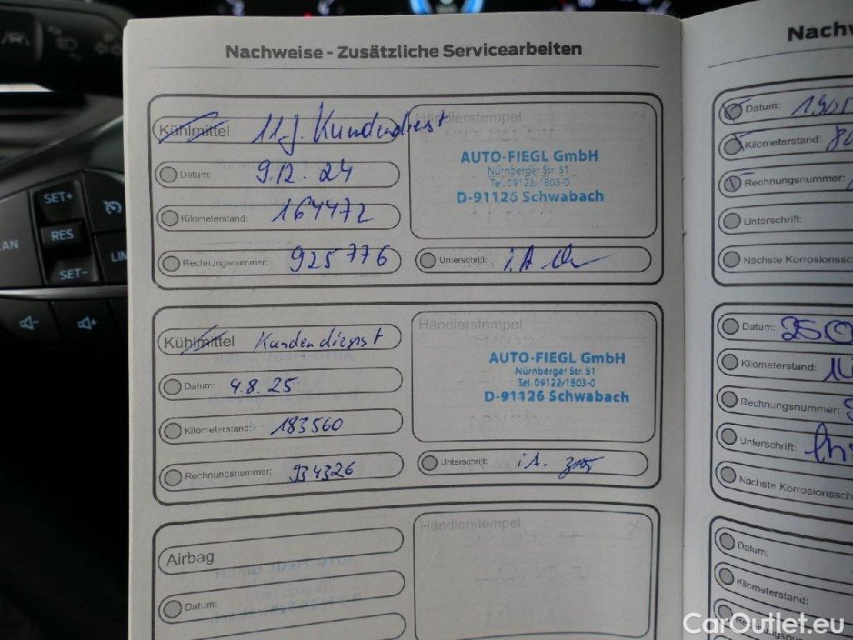 Nachweise - Zusätzliche Servicearbeiten
Kühlmittel 11.J. Kundendienst
Datum: 9.12.24
Kilometerstand: 164472
Rechnungsnummer: 925776
Händlerstempel
AUTO-FIEGL GmbH
Nürnberger Str. 51
Tel. 09122/1803-0
D-91126 Schwabach
Unterschrift: i.A.
Kühlmittel Kundendienst
Datum: 4.8.25
Kilometerstand: 183560
Rechnungsnummer: 934326
Händlerstempel
AUTO-FIEGL GmbH
Nürnberger Str. 51
Tel. 09122/1803-0
D-91126 Schwabach
Unterschrift: i.A.
Airbag
Datum:
Händlerstempel
Nachw
Datum:
Kilometerstand:
Rechnungsnummer:
Unterschrift:
Nächste Korrosionssc
Datum:
Kilometerstand:
Rechnungsnummer:
Unterschrift:
Nächste Korrosionssch
Datum:
Kilometerstand:
SET+
RES
SET-
AN
LIM
CarOutlet.eu